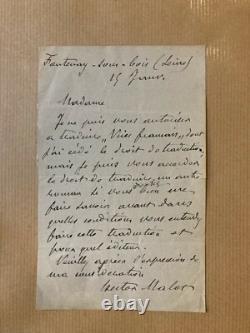 Fontenay-sous-bois (Seine)
15 Janv.
Madame
Je ne puis vous autoriser
à traduire „ dont
j'ai cédé le droit de traduction
mais je puis vous accorder
le droit de traduire un autre
roman si vous me
faire savoir avant dans
quelles conditions vous
faire cette traduction et
pour quel éditeur.
Veuillez agréer l'expression de
ma considération
Hector Malot